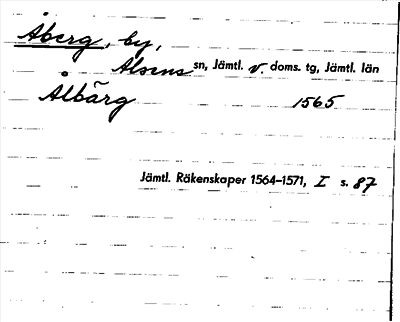 Åberg, by,
Alsens sn, Jämtl. v. doms. tg, Jämtl. län
Ålbärg 1565
Jämtl. Räkenskaper 1564–1571, I s. 87